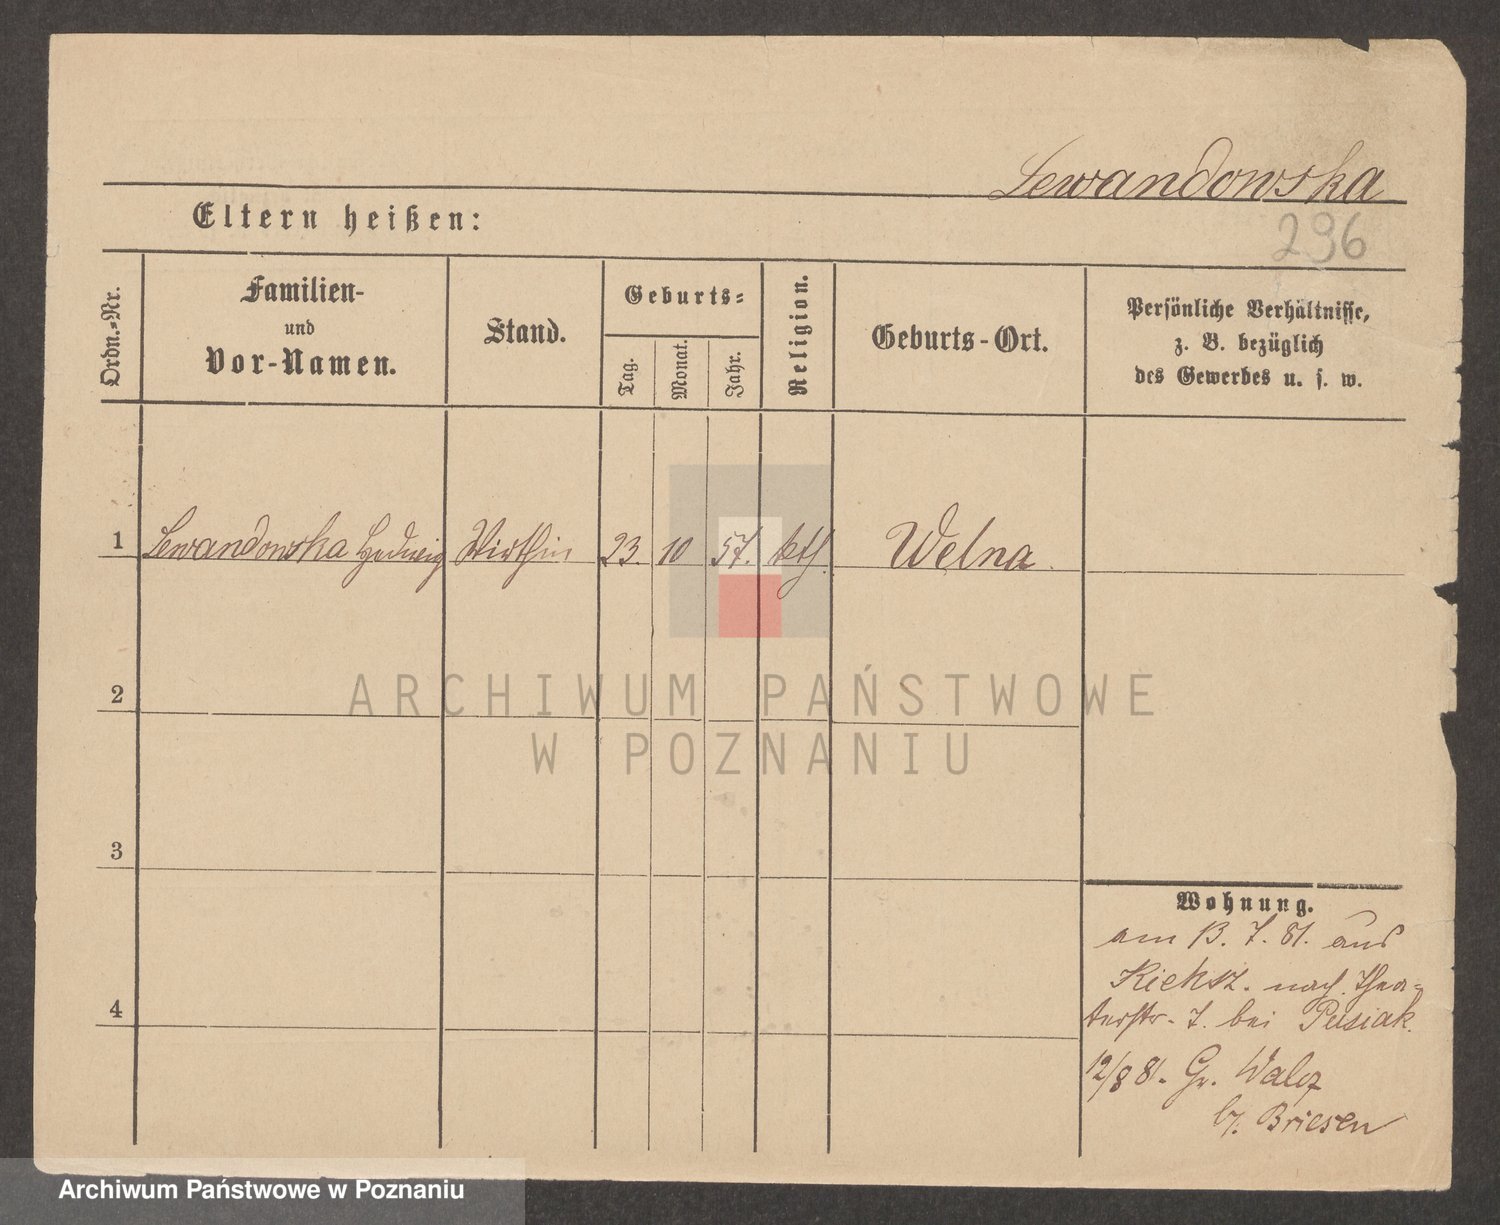 Lewandowska
Eltern heißen:
296
Ordn.-Nr.
Familien-
und
Vor-Namen.
Stand.
Geburts-
Tag.
Monat.
Jahr.
Religion.
Geburts-Ort.
Persönliche Verhältnisse,
z. B. bezüglich
des Gewerbes u. s. w.
1 Lewandowska Hedwig Wirthin 23. 10 57. kth. Welna.
2
3
4
Wohnung.
am 13. 7. 81. aus
Kicksz. nach Thea-
terstr. 7. bei Pusiak.
12/8 81. Gr. Walcz
b/. Briesen
ARCHIWUM PAŃSTWOWE
W POZNANIU
Archiwum Państwowe w Poznaniu